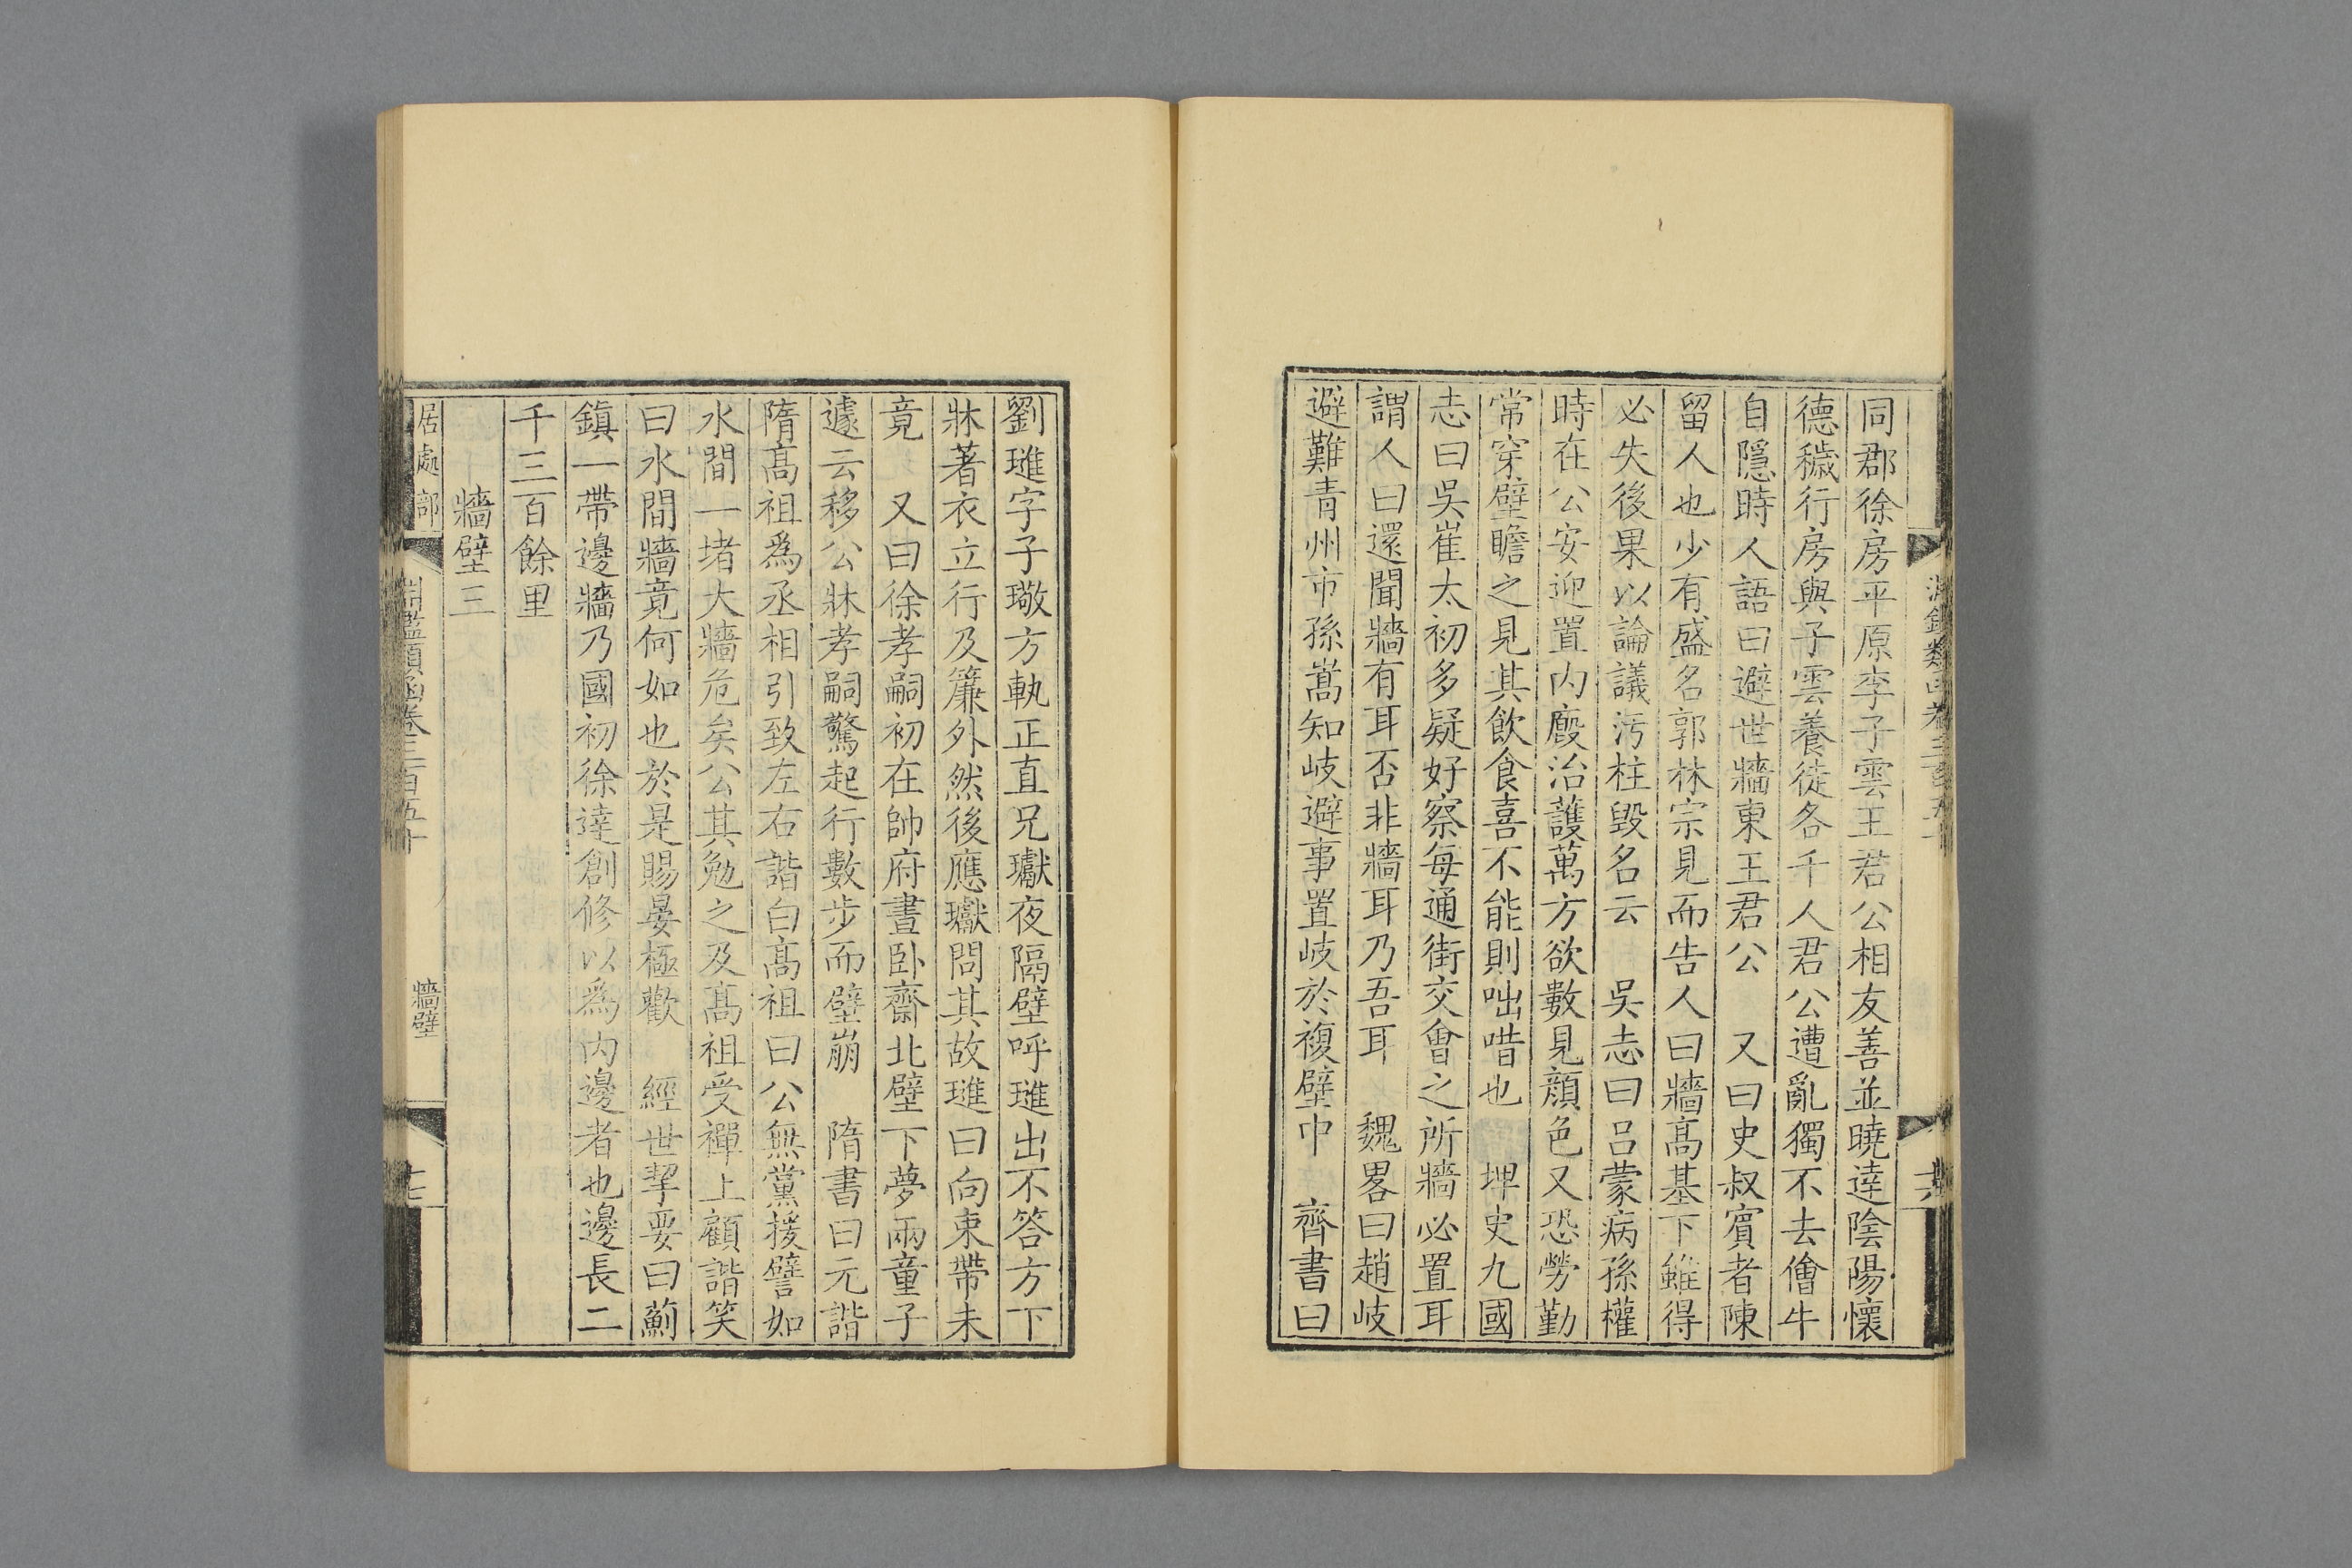 同郡徐房平原李子雲王君公相友善並曉逹陰陽懷
德穢行房與子雲養徒各千人君公遭亂獨不去儈牛
自隱時人語曰避世牆東王君公　又曰史叔賓者陳
留人也少有盛名郭林宗見而告人曰牆髙基下雖得
必失後果以論議汚柱毀名云　吳志曰吕蒙病孫權
時在公安迎置内廏治護萬方欲數見顔色又恐勞勤
常穿壁瞻之見其飲食喜不能則咄唶也　埤史九國
志曰吳崔太初多疑好察每通街交會之所牆必置耳
謂人曰還聞牆有耳否非牆耳乃吾耳　魏畧曰趙岐
避難青州市孫嵩知岐避事置岐於複壁中　齊書曰
劉璡字子璥方軌正直兄瓛夜隔壁呼璡出不答方下
牀著衣立行及簾外然後應瓛問其故璡曰向束帶未
竟　又曰徐孝嗣初在帥府晝卧齋北壁下夢兩童子
遽云移公牀孝嗣驚起行數步而壁崩　隋書曰元諧
隋髙祖爲丞相引致左右諧白髙祖曰公無黨援譬如
水間一堵大牆危矣公其勉之及髙祖受禪上顧諧笑
曰水間牆竟何如也於是賜晏極歡　經世挈要曰薊
鎮一帶邊牆乃國初徐逹創修以爲内邊者也邊長二
千三百餘里
牆壁三
居處部
淵鑑類函卷三百五十
牆壁